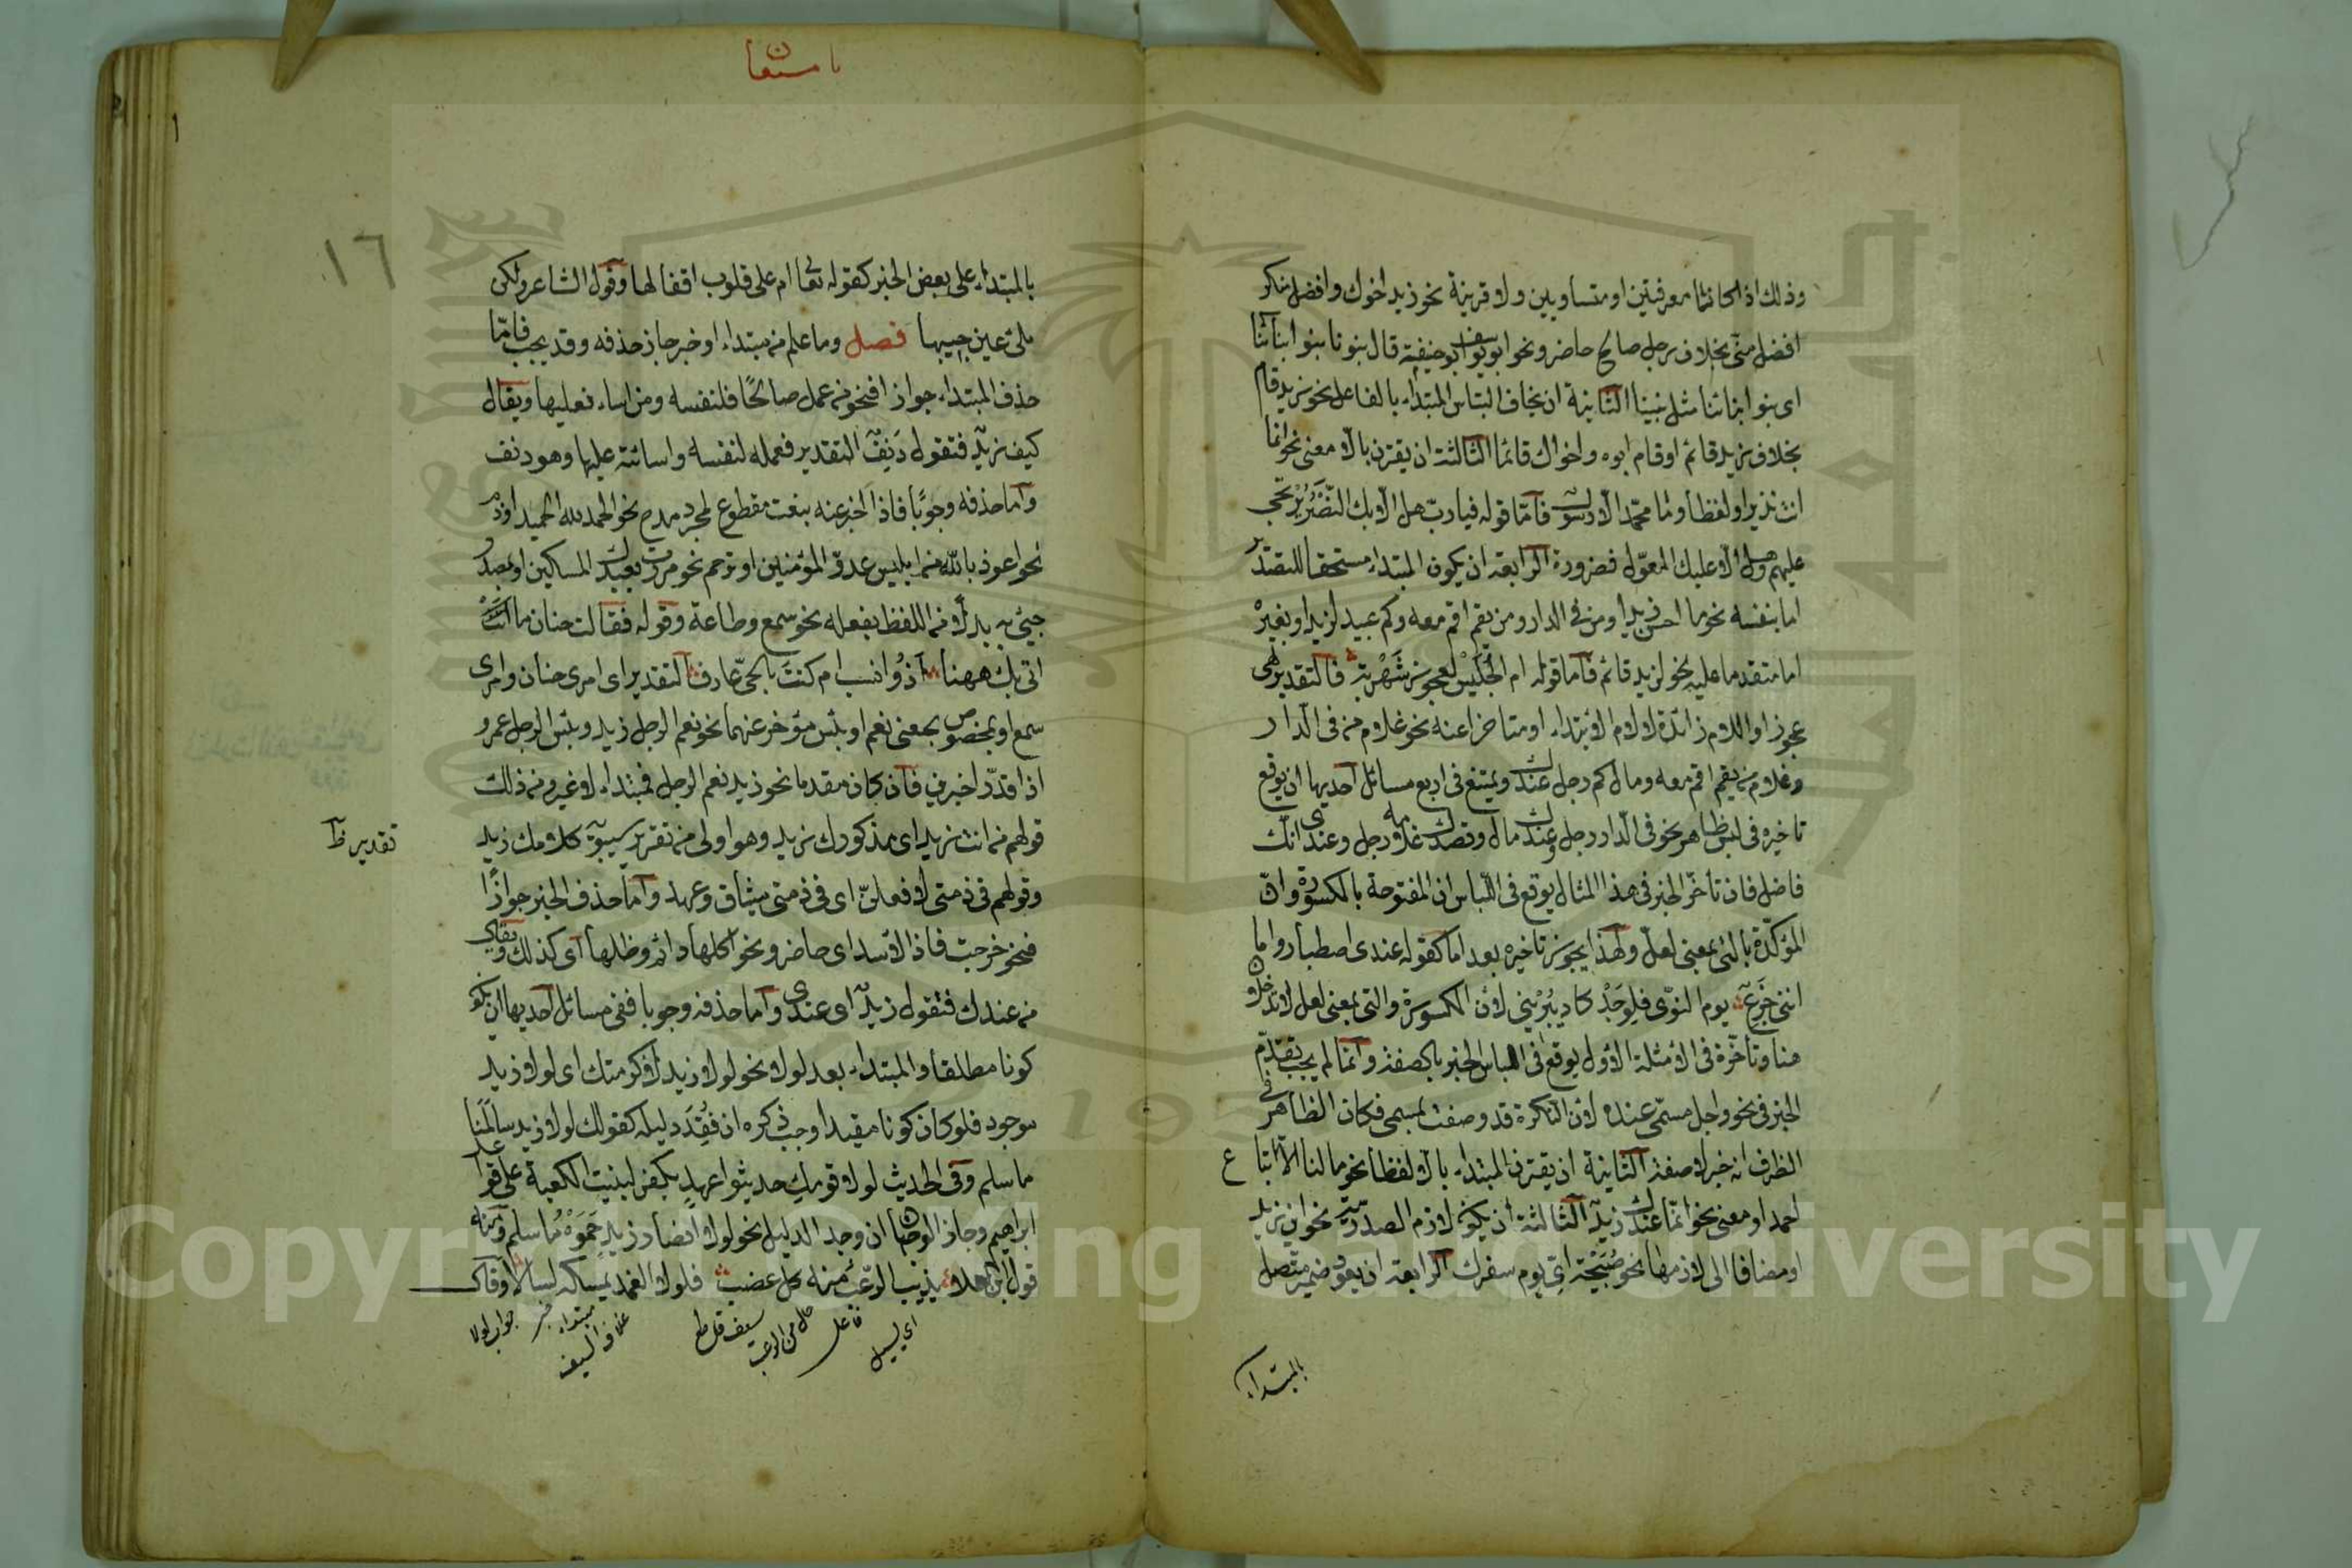 وذلك اذا كانتا معرفتين او متساويين ولا قرينة نحو زيد اخوك وافضل منك
افضل منى بخلاف رجل صالح حاضر ونحو ابو يوسف ابو حنيفة قال بنونا بنو ابنائنا
اى بنو ابنائنا مثل بنينا الثانية ان يخاف التباس المبتداء بالفاعل نحو زيد قام
بخلاف زيد قائم او قام ابوه واخواك قاما الثالثة ان يقترن بالا معنى نحو انما
انت نذير او لفظا وما محمد الا رسول فاما قوله فيا رب هل الا بك النصر يرتجى
عليهم وهل الا عليك المعول فضرورة الرابعة ان يكون المبتداء مستحقا للتصدير
اما بنفسه نحو ما احسن زيدا ومن فى الدار ومن يقم اقم معه وكم عبيد لزيد او بغيره
اما متقدما عليه نحو لزيد قائم فاما قوله ام الحليس لعجوز شهربه فالتقدير لهى
عجوز او اللام زائدة لا لام الابتداء او متاخرا عنه نحو غلام من فى الدار
وغلام من يقم اقم معه ومال كم رجل عندك ويمتنع فى اربع مسائل احديها ان يوقع
تاخيره فى لبس ظاهر نحو فى الدار رجل وعندك مال وقصدك غلامه رجل وعندى انك
فاضل فان تأخر الخبر فى هذا المثال يوقع فى التباس ان المفتوحة بالمكسورة وان
المؤكدة بالتى بمعنى لعل ولهذا يجوز تاخيره بعد اما كقوله عندى اصطبار واما
اننى جزع يوم النوى فلوجد كاد يبرينى لان المكسورة والتى بمعنى لعل لا تدخلان
هنا وتأخره فى الامثلة الاول يوقع فى الباس الخبر بالصفة وانما لم يجب تقديم
الخبر فى نحو واجل مسمى عنده لان النكرة قد وصفت بمسمى فكان الظاهر فى
الظرف انه خبر لا صفة الثانية ان يقترن المبتداء بالا لفظا نحو ما لنا الا اتباع
احمد او معنى نحو انما عندك زيد الثالثة ان يكون لازم الصدرية نحو اين زيد
او مضافا الى لازمها نحو صبيحة اى يوم سفرك الرابعة ان يعود ضمير متصل
بالمبتداء
١٦
بالمبتداء على بعض الخبر كقوله تعا ام على قلوب اقفالها وقول الشاعر ولكن
ملئ عين حبيبها فصل وما علم من مبتداء او خبر جاز حذفه وقد يجب فاما
حذف المبتداء جوازا فنحو من عمل صالحا فلنفسه ومن اساء فعليها ويقال
كيف زيد فتقول دنف التقدير فعمله لنفسه واسائته عليها وهو دنف
واما حذفه وجوبا فاذا اخبر عنه بنعت مقطوع لمجرد مدح نحو الحمد لله الحميد او ذم
نحو اعوذ بالله من ابليس عدو المؤمنين او ترحم نحو مررت بعبدك المسكين او بمصدر
جيئ به بدلا من اللفظ بفعله نحو سمع وطاعة وقوله فقالت حنان ما
اتى بك ههنا اذو نسب ام كنت بالحى عارف التقدير اى امرى حنان وامرى
سمع او بمخصوص بمعنى نعم او بئس مؤخر عنهما نحو نعم الرجل زيد وبئس الرجل عمرو
اذا قدرا خبرين فان كان مقدما نحو زيد نعم الرجل فمبتداء لا غير ومن ذلك
قولهم من انت زيد اى مذكورك زيد وهو اولى من تقرير سيبويه كلامك زيد
تقدير ظ
وقولهم فى ذمتى لافعلن اى فى ذمتى ميثاق وعهد واما حذف الخبر جوازا
فنحو خرجت فاذا الاسد اى حاضر ونحو اكلها دائم وظلها اى كذلك ويقال
من عندك فتقول زيد اى عندى واما حذفه وجوبا ففى مسائل احديها ان يكون
كونا مطلقا والمبتداء بعد لولا نحو لولا زيد لاكرمتك اى لولا زيد
موجود فلو كان كونا مقيدا وجب ذكره ان فقد دليله كقولك لولا زيد سالمنا
ما سلم وفى الحديث لولا قومك حديثوا عهد بكفر لبنيت الكعبة على قواعد
ابراهيم وجاز الوجهان ان وجد الدليل نحو لولا انصار زيد حموه ما سلم ومنه
يذيب الرعب منه كل عضب فلولا الغمد يمسكه لسالا وقال
اى يسيل
فاعل
حال من الرعب
سيف قاطع
غلاف السيف
مبتداء
خبر
جواب لولا
Copyright © King Saud University